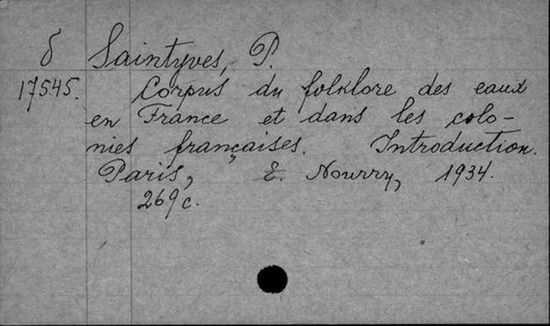 δ Saintyves, P.
17545. Corpus du folklore des eaux
en France et dans les colo-
nies françaises. Introduction.
Paris, E. Nourry, 1934.
269 c.